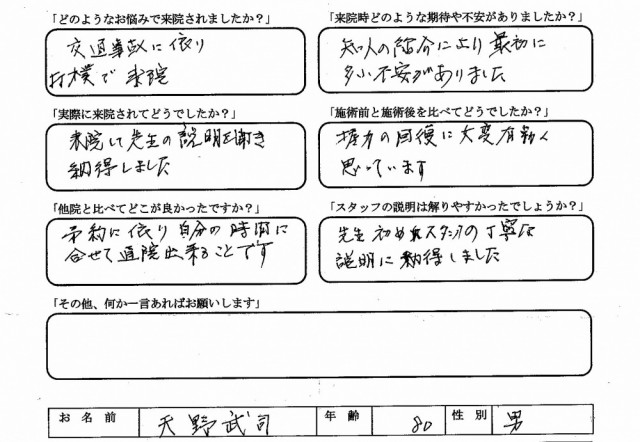 「どのようなお悩みで来院されましたか？」
交通事故に依り
打撲で来院
「来院時どのような期待や不安がありましたか？」
知人の紹介により最初に
多少不安がありました
「実際に来院されてどうでしたか？」
来院して先生の説明を聞き
納得しました
「施術前と施術後を比べてどうでしたか？」
握力の回復に大変有効と
思っています
「他院と比べてどこが良かったですか？」
予約に依り自分の時間に
合せて通院出来ることです
「スタッフの説明は解りやすかったでしょうか？」
先生初めスタッフの丁寧な
説明に納得しました
「その他、何か一言あればお願いします」
お名前 天野武司 年齢 80 性別 男